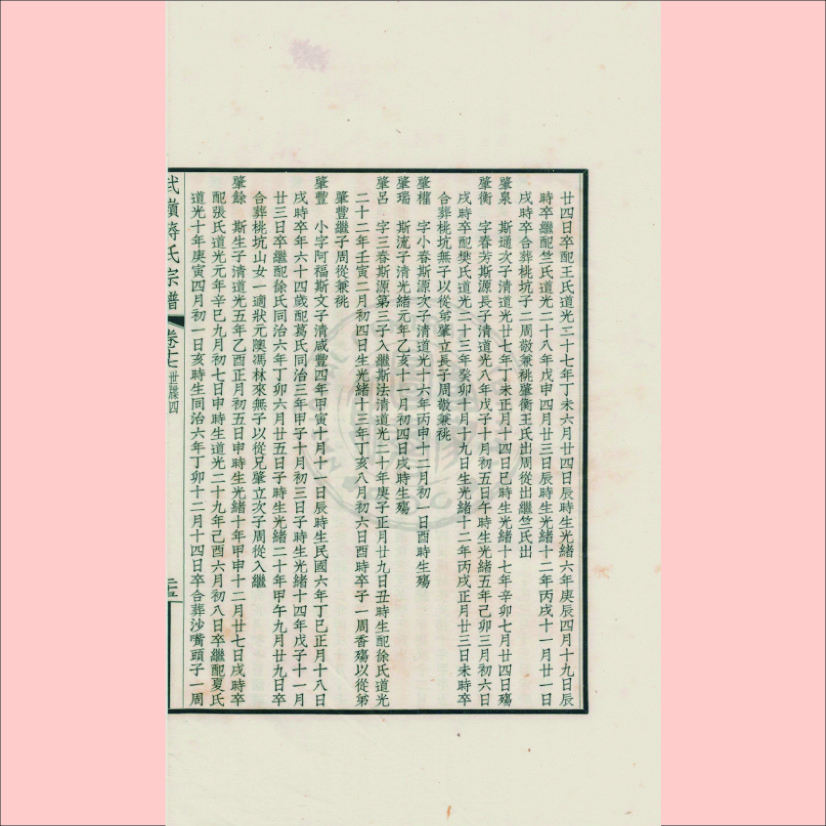 廿四日卒配王氏道光二十七年丁未六月廿四日辰時生光緒六年庚辰四月十九日辰
時卒繼配竺氏道光二十八年戊申四月廿三日辰時生光緒十二年丙戌十一月廿一日
戌時卒合葬桃坑子二周敬兼祧肇衡王氏出周從出繼竺氏出
肇泉 斯通次子清道光廿七年丁未正月十四日巳時生光緒十七年辛卯七月廿四日殤
肇衡 字春芳斯源長子清道光八年戊子十月初五日午時生光緒五年己卯三月初六日
戌時卒配樊氏道光二十三年癸卯十月十九日生光緒十二年丙戌正月廿三日未時卒
合葬桃坑無子以從弟肇立長子周敬兼祧
肇權 字小春斯源次子清道光十六年丙申十二月初一日酉時生殤
肇瑞 斯流子清光緒元年乙亥十一月初四日戌時生殤
肇呂 字三春斯源第三子入繼斯法清道光二十年庚子正月廿九日丑時生配徐氏道光
二十二年壬寅二月初四日生光緒十三年丁亥八月初六日酉時卒子一周香殤以從弟
肇豐繼子周從兼祧
肇豐 小字阿福斯文子清咸豐四年甲寅十月十一日辰時生民國六年丁巳正月十八日
戌時卒年六十四歲配葛氏同治三年甲子十月初三日子時生光緒十四年戊子十一月
廿三日卒繼配徐氏同治六年丁卯六月廿五日子時生光緒二十年甲午九月廿九日卒
合葬桃坑山女一適狀元隩馮林來無子以從兄肇立次子周從入繼
肇餘 斯生子清道光五年乙酉正月初五日申時生光緒十年甲申十二月廿七日戌時卒
配張氏道光元年辛巳九月初七日申時生道光二十九年己酉六月初八日卒繼配夏氏
道光十年庚寅四月初一日亥時生同治六年丁卯十二月十四日卒合葬沙嘴頭子一周
武嶺蔣氏宗譜 卷十七 世牒四